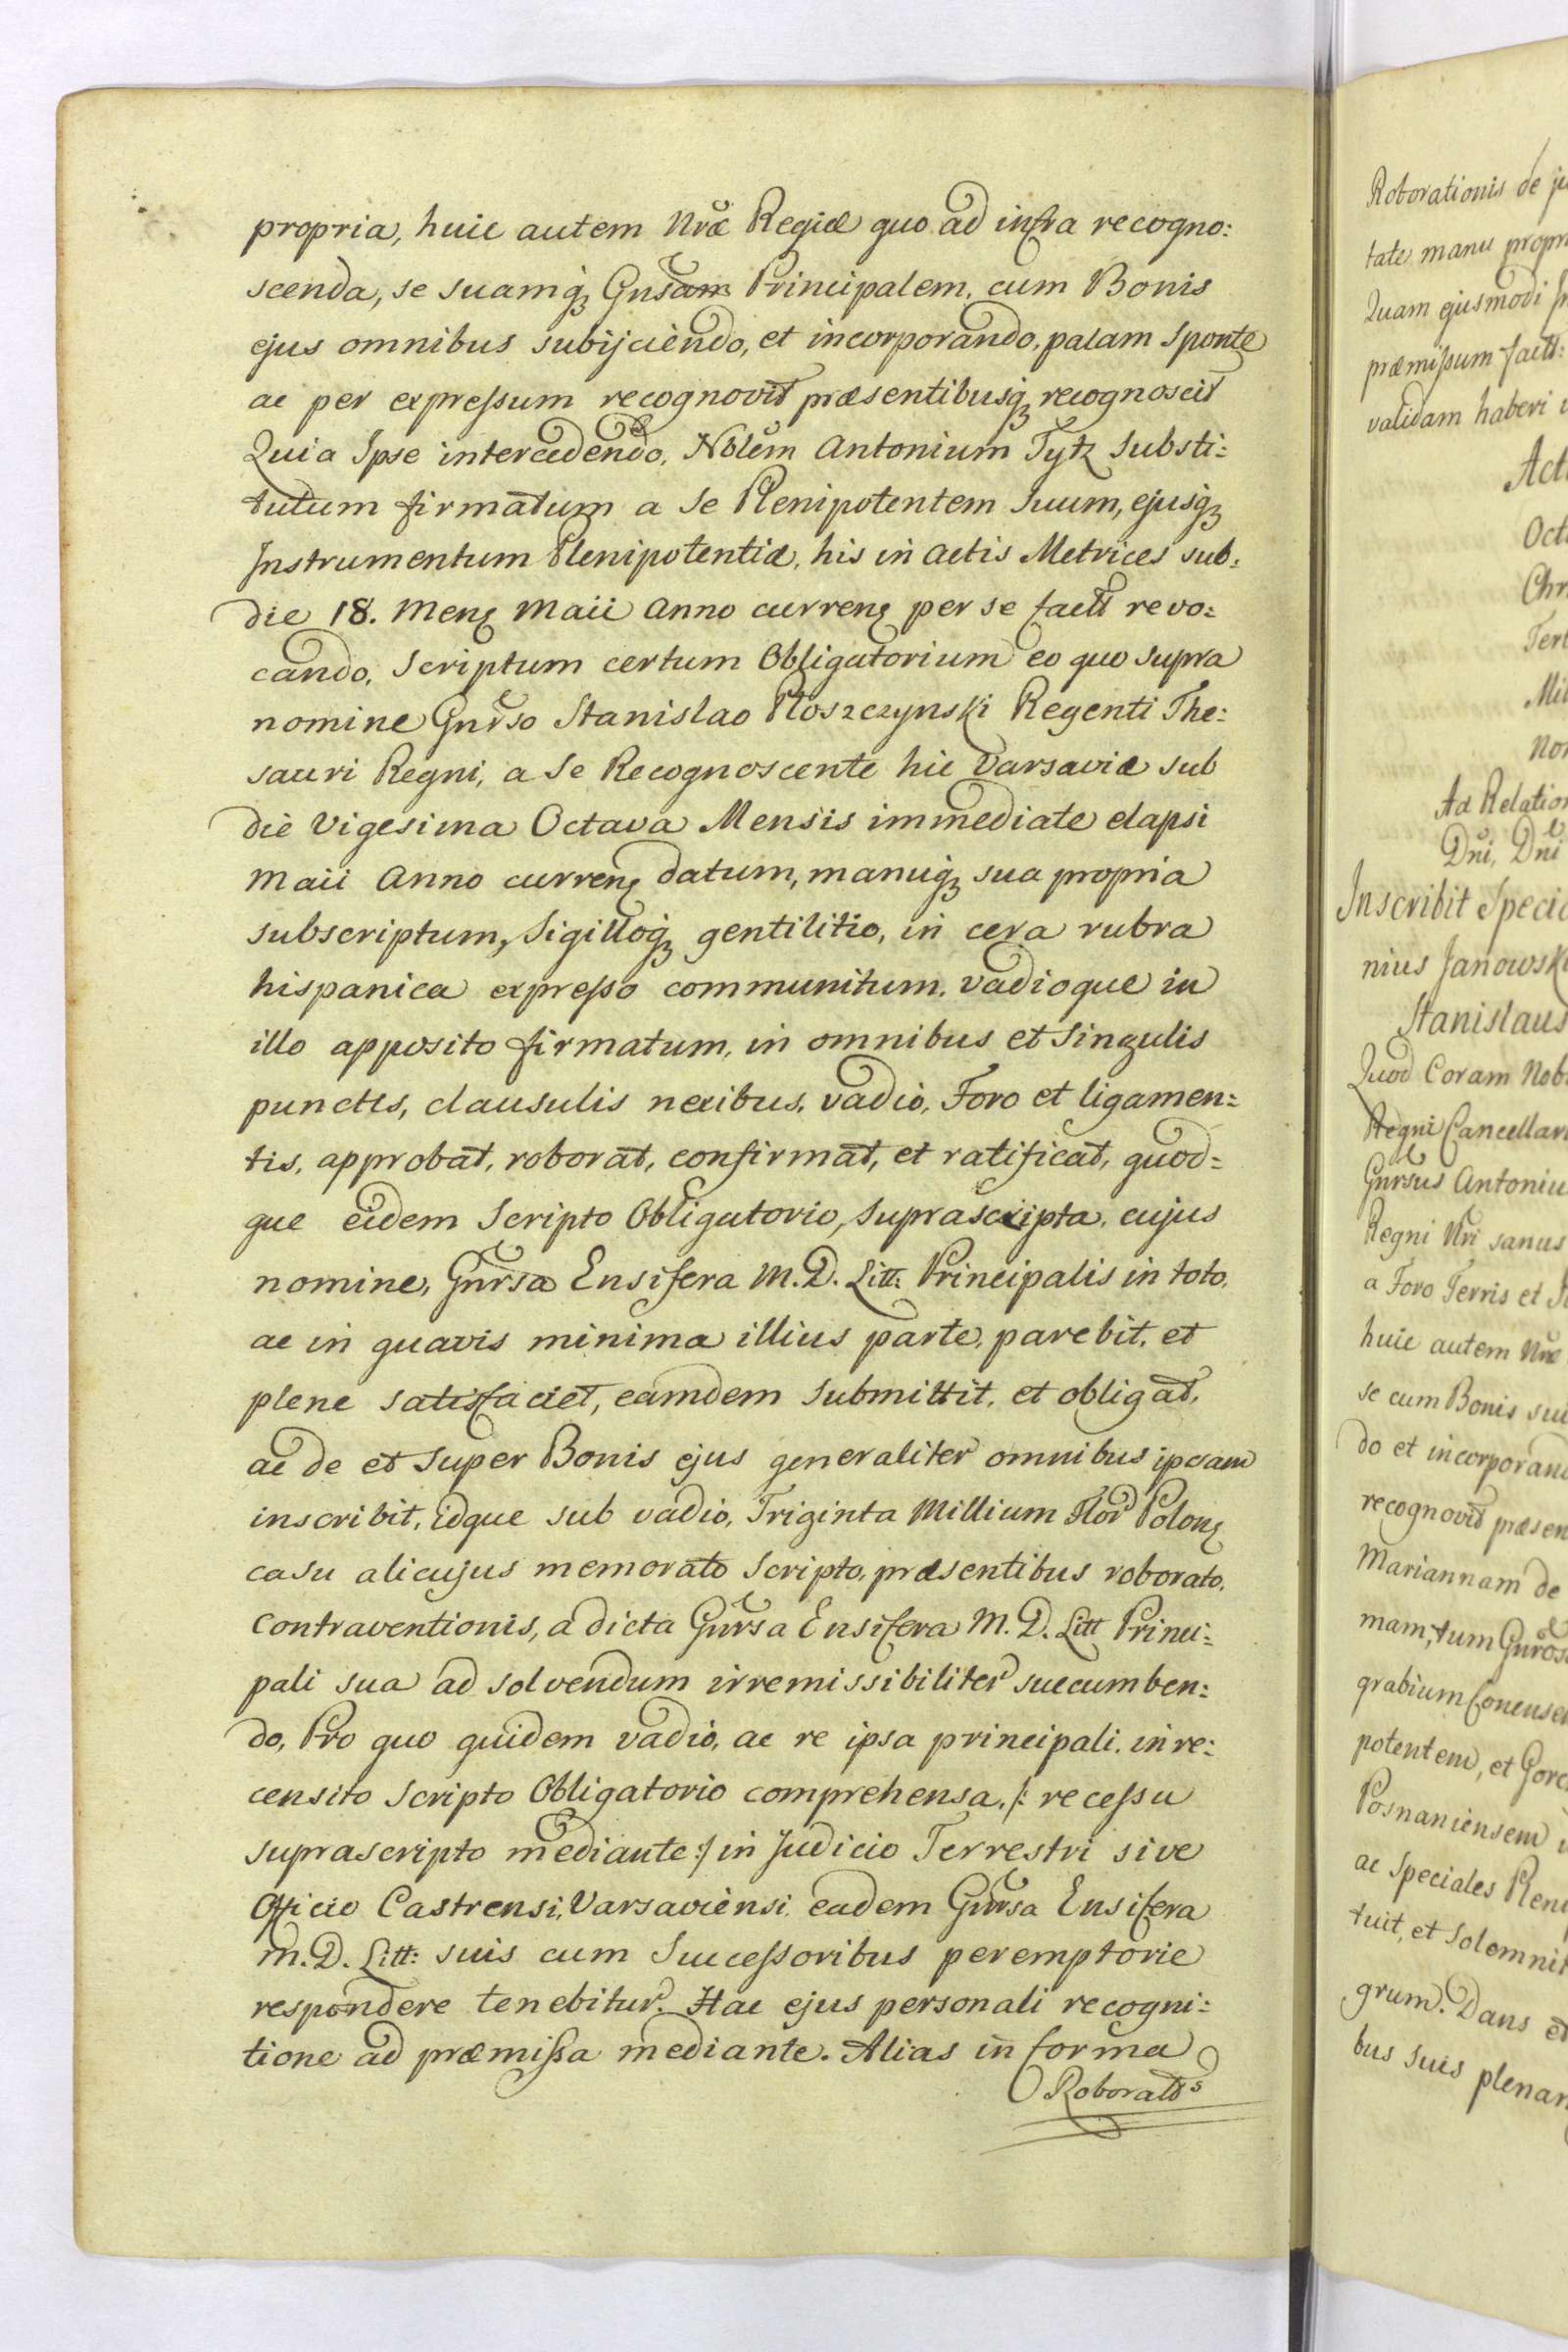 propria, huic autem Nræ Regiæ quo ad infra recogno:
scenda, se suamq; Gnsam Principalem, cum Bonis
ejus omnibus subijciendo, et incorporando, palam sponte
ac per expressum recognovit præsentibusq; recognoscit
Quia Ipse intercedendo, Nblem Antonium Tytz Substi:
tutum firmatum a Se Plenipotentem Suum, ejusq;
Instrumentum Plenipotentiæ, his in Actis Metrices sub:
die 18. Mens Maii Anno currens per se factt revo:
cando, Scriptum certum Obligatorium eo quo supra
nomine Gnrso Stanislao Ploszczynski Regenti The:
sauri Regni, a Se Recognoscente hic Varsaviæ sub
die Vigesima Octava Mensis immediate elapsi
Maii Anno currens datum, manuq; sua propria
subscriptum, Sigilloq; gentilitio, in cera rubra
hispanica expresso communitum, vadioque in
illo apposito firmatum, in omnibus et Singulis
punctis, clausulis nexibus, vadio, Foro et ligamen:
tis, approbat, roborat, confirmat, et ratificat, quod=
que eidem Scripto Obligatorio, suprascripta, cujus
nomine, Gnrsa Ensifera M. D. Litt: Principalis in toto,
ac in quavis minima illius parte, parebit, et
plene satisfaciet, eamdem submittit, et obligat,
ac de et super Bonis ejus generaliter omnibus ipsam
inscribit, idque sub vadio, Triginta Millium Flor Polons
casu alicujus memorato Scripto, præsentibus roborato,
contraventionis, a dicta Gnrsa Ensifera M. D. Litt Princi:
pali sua ad solvendum irremissibiliter succumben:
do, Pro quo quidem vadio, ac re ipsa principali, in re:
censito Scripto Obligatorio comprehensa, /: recessu
suprascripto mediante :/ in Judicio Terrestri sive
Officio Castrensi, Varsaviensi, eadem Gnrsa Ensifera
M. D. Litt: suis cum Successoribus peremptorie
respondere tenebitur. Hac ejus personali recogni:
tione ad præmissa mediante. Alias in forma
Roboratts
Roborationis de
tate manu
Quam ejusmodi
præmissum factt:
validam haberi
Ad
Dni, Dni
Inscribit
nius
Stanislaus
Quod Coram
Regni
Gnrsus
Regni Nri sanus
a Foro Terris et
huic autem Nræ
se cum Bonis
do et
recognovit
Mariannam de
mam, tum
potentem, et
Posnaniensem
ac Speciales
tuit, et
grum. Dans et
bus suis